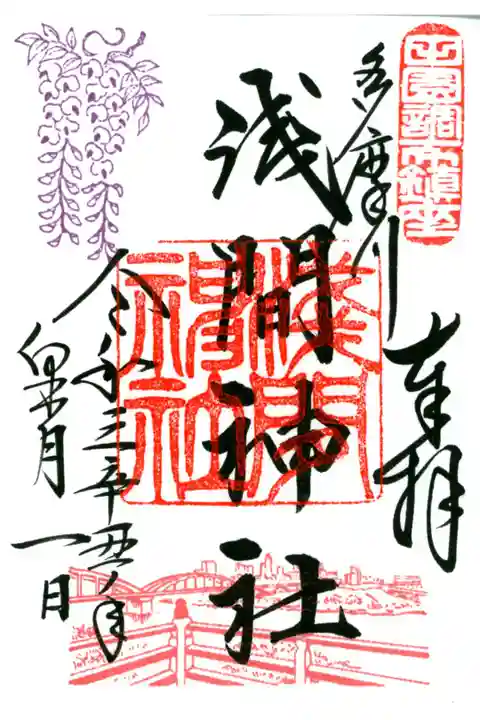 田園調布鎮座
奉拝
多摩川
浅間神社
淺間神社
令和三辛丑ノ年
皐月一日